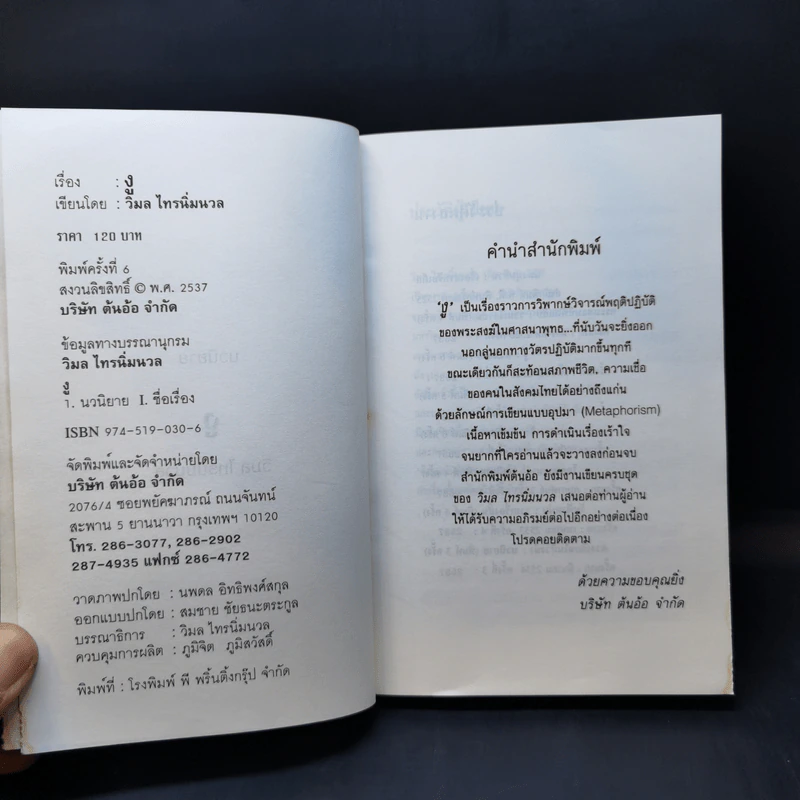 เรื่อง : งู
เขียนโดย : วิมล ไทรนิ่มนวล
ราคา 120 บาท
พิมพ์ครั้งที่ 6
สงวนลิขสิทธิ์ © พ.ศ. 2537
บริษัท ต้นอ้อ จำกัด
ข้อมูลทางบรรณานุกรม
วิมล ไทรนิ่มนวล
งู
1. นวนิยาย I. ชื่อเรื่อง
ISBN 974-519-030-6
จัดพิมพ์และจัดจำหน่ายโดย
บริษัท ต้นอ้อ จำกัด
2076/4 ซอยพยัคฆาภรณ์ ถนนจันทน์
สะพาน 5 ยานนาวา กรุงเทพฯ 10120
โทร. 286-3077, 286-2902
287-4935 แฟกซ์ 286-4772
วาดภาพปกโดย : นพดล อิทธิพงศ์สกุล
ออกแบบปกโดย : สมชาย ชัยธนะตระกูล
บรรณาธิการ : วิมล ไทรนิ่มนวล
ควบคุมการผลิต : ภูมิจิต ภูมิสวัสดิ์
พิมพ์ที่ : โรงพิมพ์ พี พริ้นติ้งกรุ๊ป จำกัด
คำนำสำนักพิมพ์
'งู' เป็นเรื่องราวการวิพากษ์วิจารณ์พฤติปฏิบัติ
ของพระสงฆ์ในศาสนาพุทธ...ที่นับวันจะยิ่งออก
นอกลู่นอกทางวัตรปฏิบัติมากขึ้นทุกที
ขณะเดียวกันก็สะท้อนสภาพชีวิต, ความเชื่อ
ของคนในสังคมไทยได้อย่างถึงแก่น
ด้วยลักษณ์การเขียนแบบอุปมา (Metaphorism)
เนื้อหาเข้มข้น การดำเนินเรื่องเร้าใจ
จนยากที่ใครอ่านแล้วจะวางลงก่อนจบ
สำนักพิมพ์ต้นอ้อ ยังมีงานเขียนครบชุด
ของ วิมล ไทรนิ่มนวล เสนอต่อท่านผู้อ่าน
ให้ได้รับความอภิรมย์ต่อไปอีกอย่างต่อเนื่อง
โปรดคอยติดตาม
ด้วยความขอบคุณยิ่ง
บริษัท ต้นอ้อ จำกัด